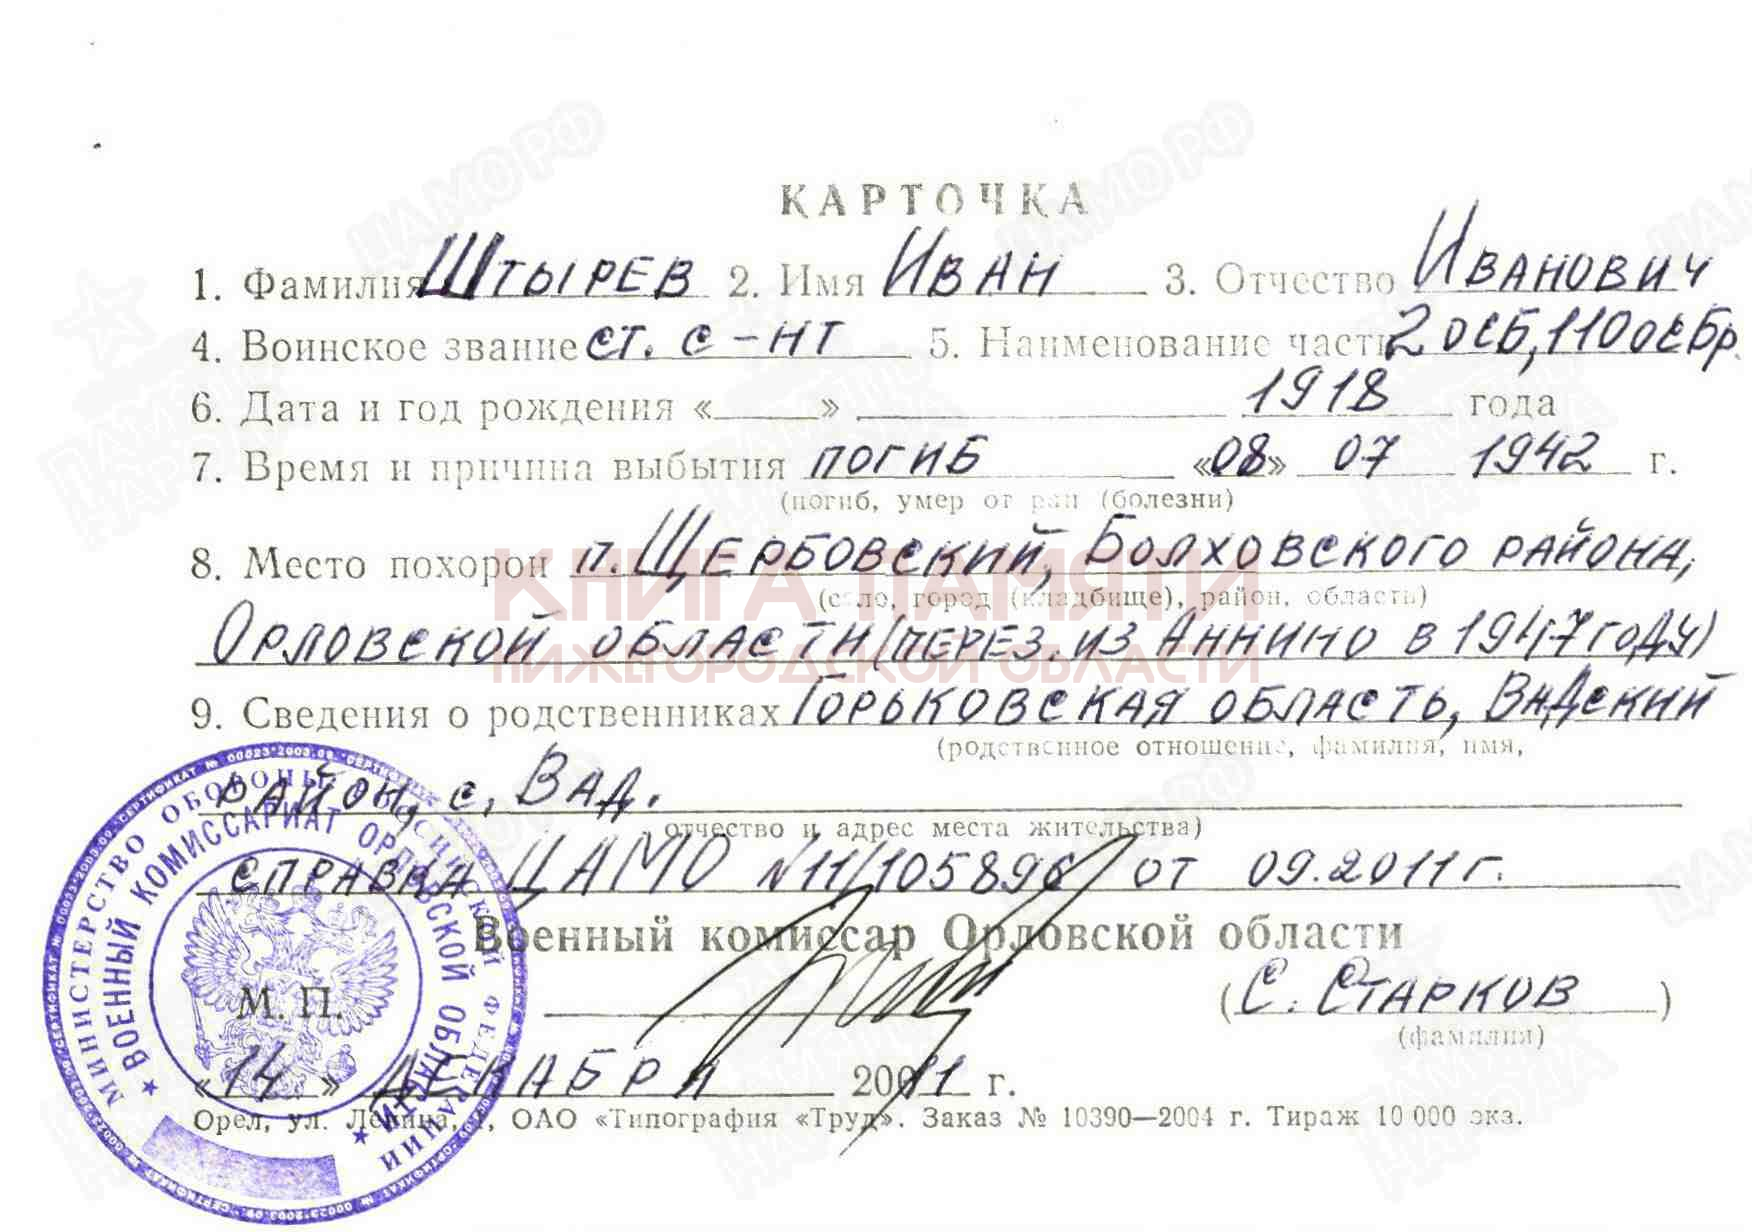 КАРТОЧКА
1. Фамилия Штырев 2. Имя Иван 3. Отчество Иванович
4. Воинское звание ст. с-нт 5. Наименование части 2 осб, 110 осбр.
6. Дата и год рождения « » 1918 года
7. Время и причина выбытия погиб «08» 07 1942 г.
(погиб, умер от ран (болезни)
8. Место похорон п. Щербовский, Болховского района,
(село, город (кладбище), район, область)
Орловской области (перез. из Аннино в 1947 году)
КНИГА ПАМЯТИ
НИЖЕГОРОДСКОЙ ОБЛАСТИ
9. Сведения о родственниках Горьковская область, Вадский
(родственное отношение, фамилия, имя,
район, с. Вад.
отчество и адрес места жительства)
справка ЦАМО №11/105896 от 09.2011г.
Военный комиссар Орловской области
М. П.
(С. Старков)
(фамилия)
«14» декабря 2011 г.
Орел, ул. Ленина, 1, ОАО «Типография «Труд». Заказ № 10390—2004 г. Тираж 10 000 экз.
МИНИСТЕРСТВО ОБОРОНЫ РОССИЙСКОЙ ФЕДЕРАЦИИ
ВОЕННЫЙ КОМИССАРИАТ ОРЛОВСКОЙ ОБЛАСТИ
ЦАМО РФ